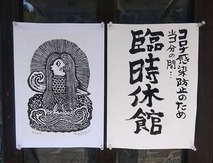 コロナ感染防止のため
当分の間…
臨時休館